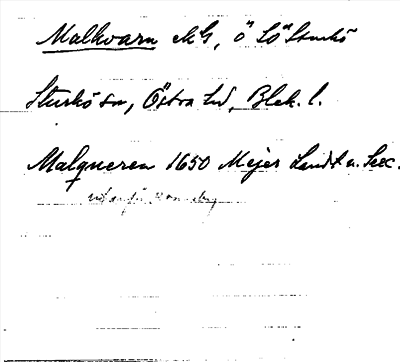 Malkvarn N G, ö SÖ Sturkö
Sturkö sn, Östra hd, Blek. l.
Malqueren 1650 Mejer Landt u. Seec.